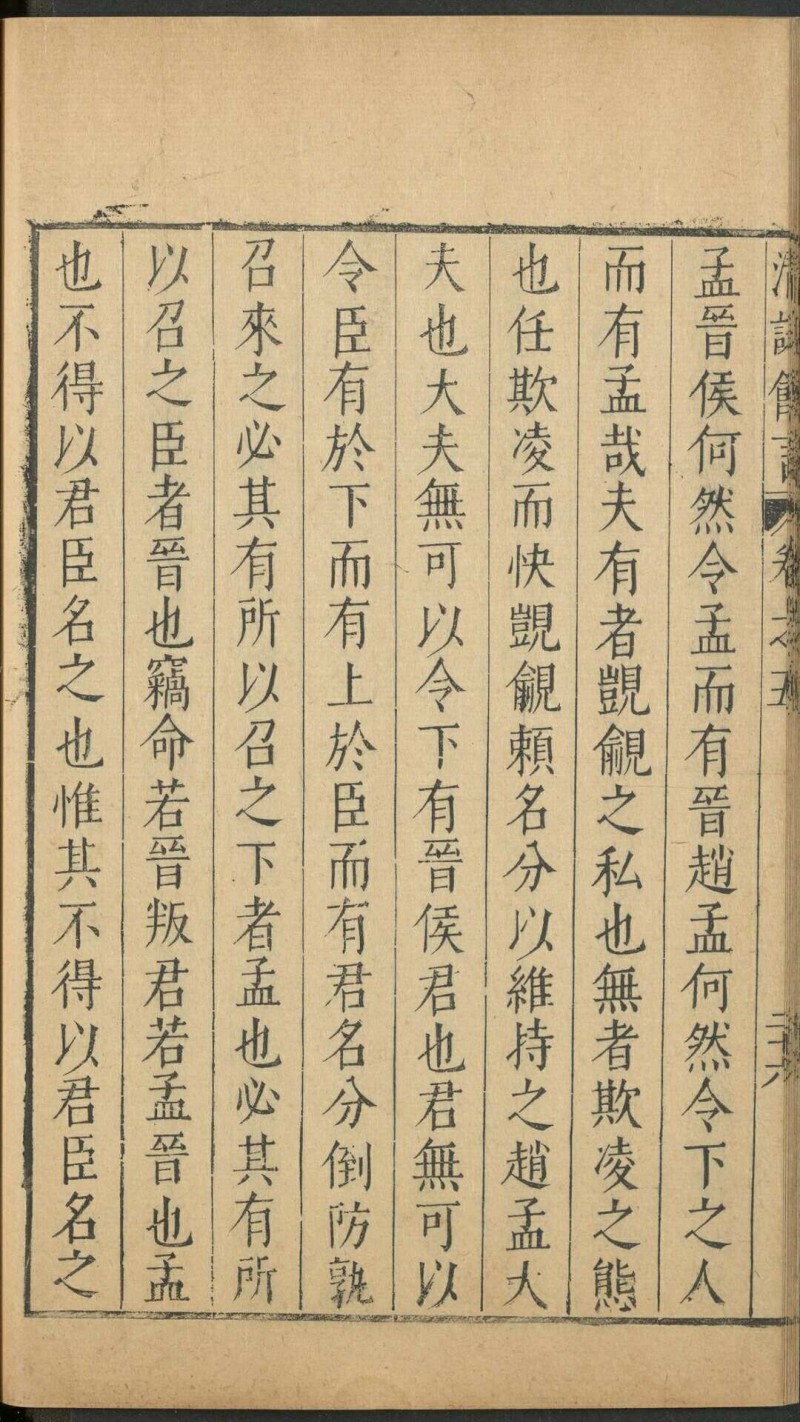 孟晉侯何然令孟而有晉趙孟何然令下之人
而有孟哉夫有者覬覦之私也無者欺凌之態
也任欺凌而快覬覦頼名分以維持之趙孟大
夫也大夫無可以令下有晉侯君也君無可以
令臣有於下而有上於臣而有君名分倒防孰
召來之必其有所以召之下者孟也必其有所
以召之臣者晉也竊命若晉叛君若孟晉也孟
也不得以君臣名之也惟其不得以君臣名之